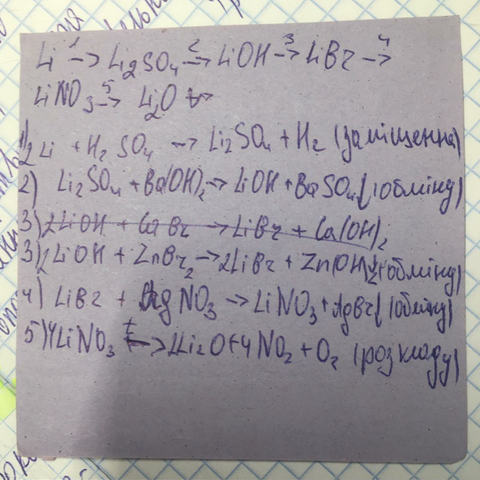 Li 1→ Li₂SO₄ 2→ LiOH 3→ LiBr 4→
LiNO₃ 5→ Li₂O
1) 2Li + H₂SO₄ → Li₂SO₄ + H₂ (заміщення)
2) Li₂SO₄ + Ba(OH)₂ → LiOH + BaSO₄ (обміну)
3) 2LiOH + CaBr → LiBr + Ca(OH)₂
3) 2LiOH + ZnBr₂ → 2LiBr + Zn(OH)₂ (обміну)
4) LiBr + AgNO₃ → LiNO₃ + AgBr (обміну)
5) 4LiNO₃ t→ 2Li₂O + 4NO₂ + O₂ (розкладу)